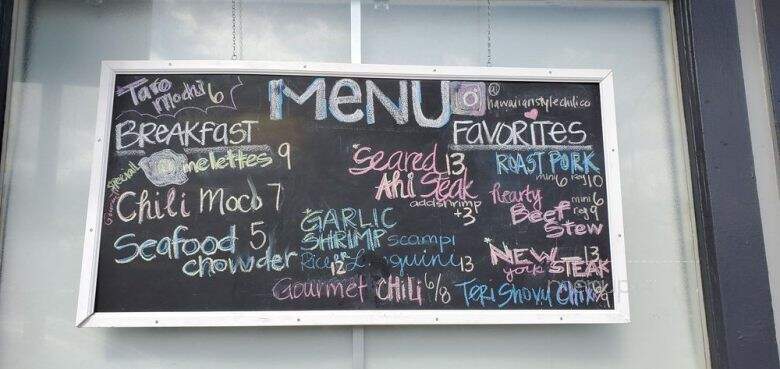 Taro
mochi 6
MeNU
@
hawaiianstylechilico
BREAKfAST
omelettes 9
Chili Moco 7
Seafood 5
chowder
Seared 13
Ahi Steak
add shrimp
+3
GARLIC
SHRIMP scampi
Rice 12 Linguini 13
Gourmet CHILI 6/8
FAVORITES
ROAST PORK
mini 6 reg 10
Hearty mini 6
Beef reg 9
Stew
*NEW 13
york STEAK
Teri Shoyu Chix 9